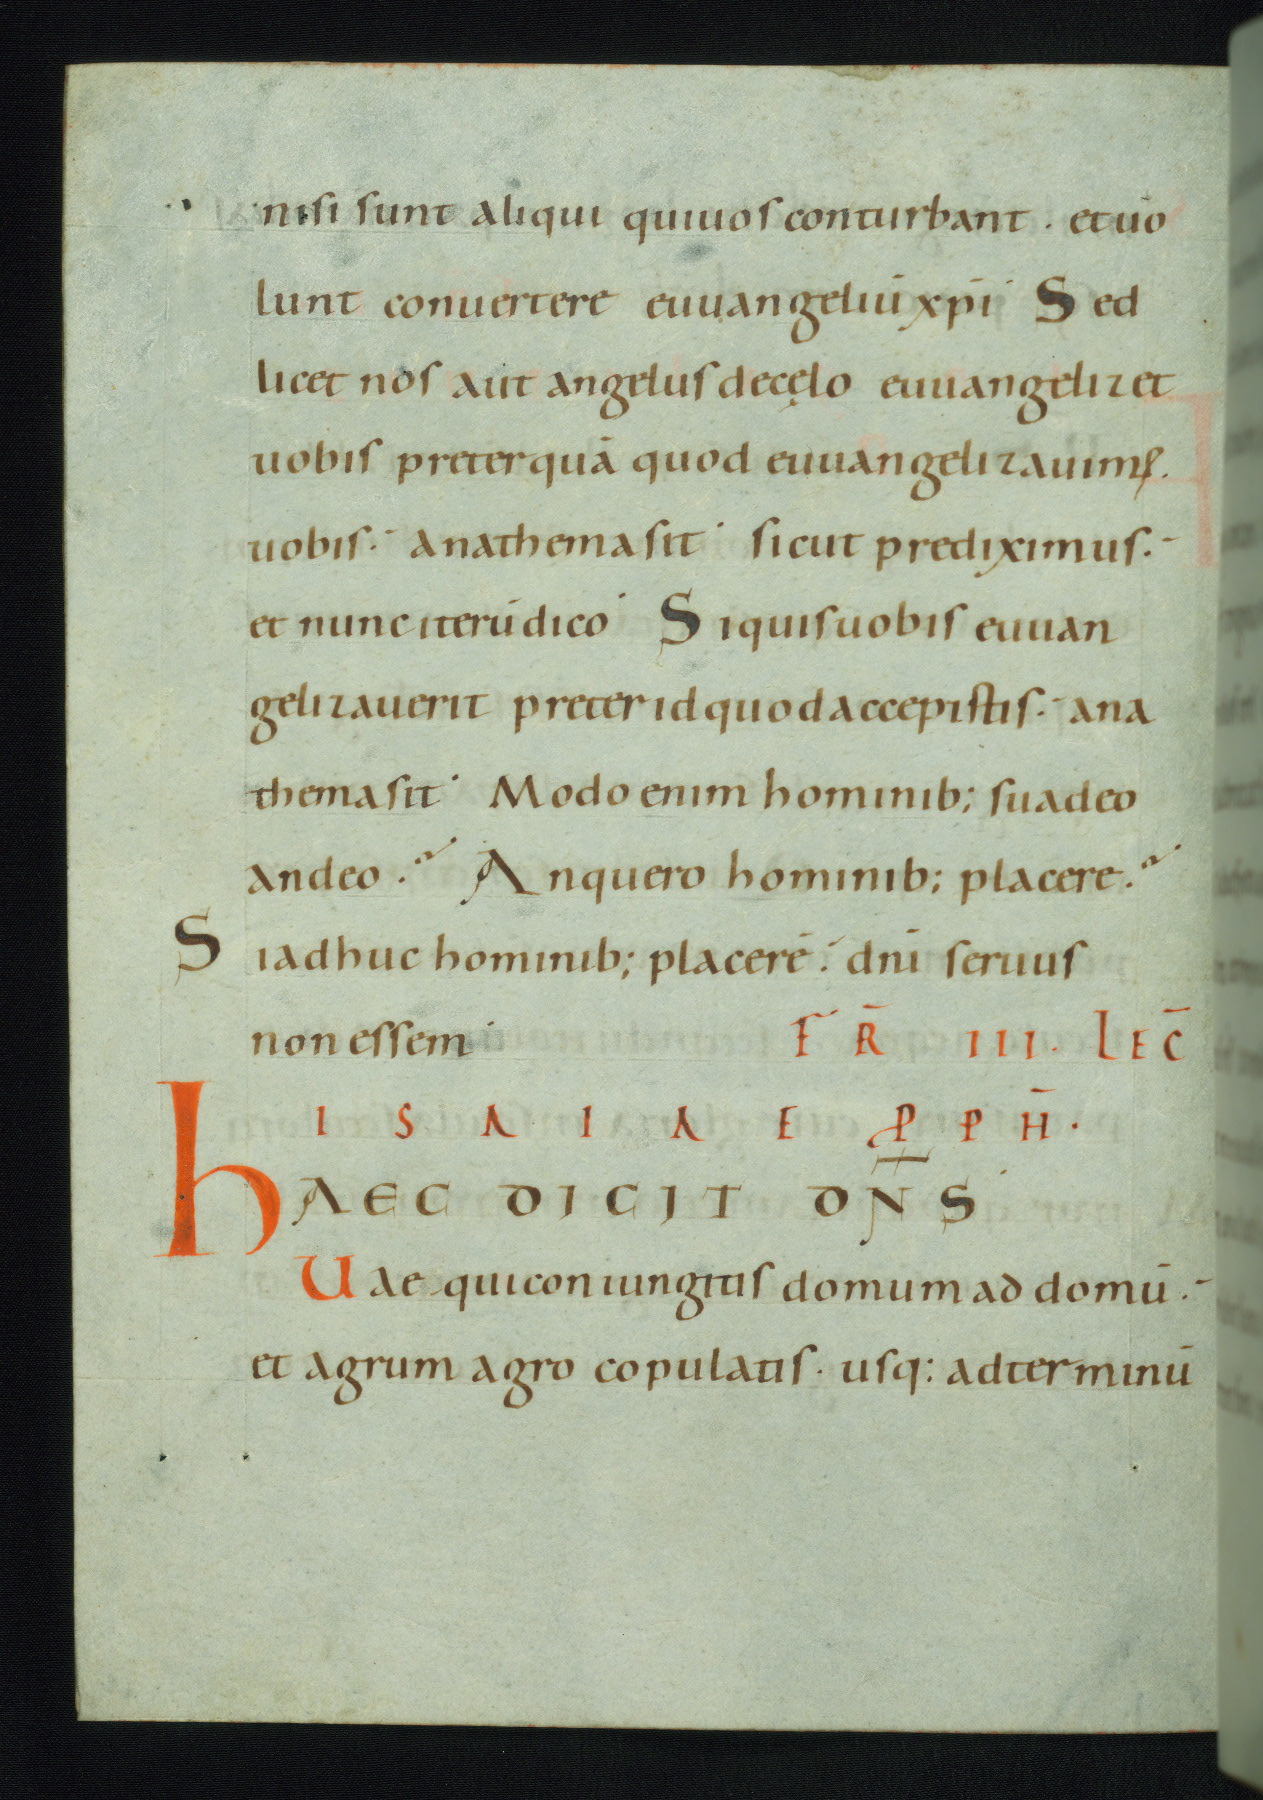 nisi sunt aliqui qui uos conturbant . et uo
lunt conuertere euuangeliū xp̄i Sed
licet nos aut angelus de cęlo euuangelizet
uobis preterquā quod euuangelizauimꝰ.
uobis. anathema sit sicut prediximus.
et nunc iterū dico Si quis uobis euuan
gelizauerit preter id quod accepistis. ana
thema sit Modo enim hominib; suadeo
an deo . An quero hominib; placere.
Si adhuc hominib; placerē. dn̄i seruus
non essem FR̄ III. LEC̄
ISAIAE PPH̄.
hAEC DICIT DN̄S
Uae qui coniungitis domum ad domū.
et agrum agro copulatis. usq: ad terminū